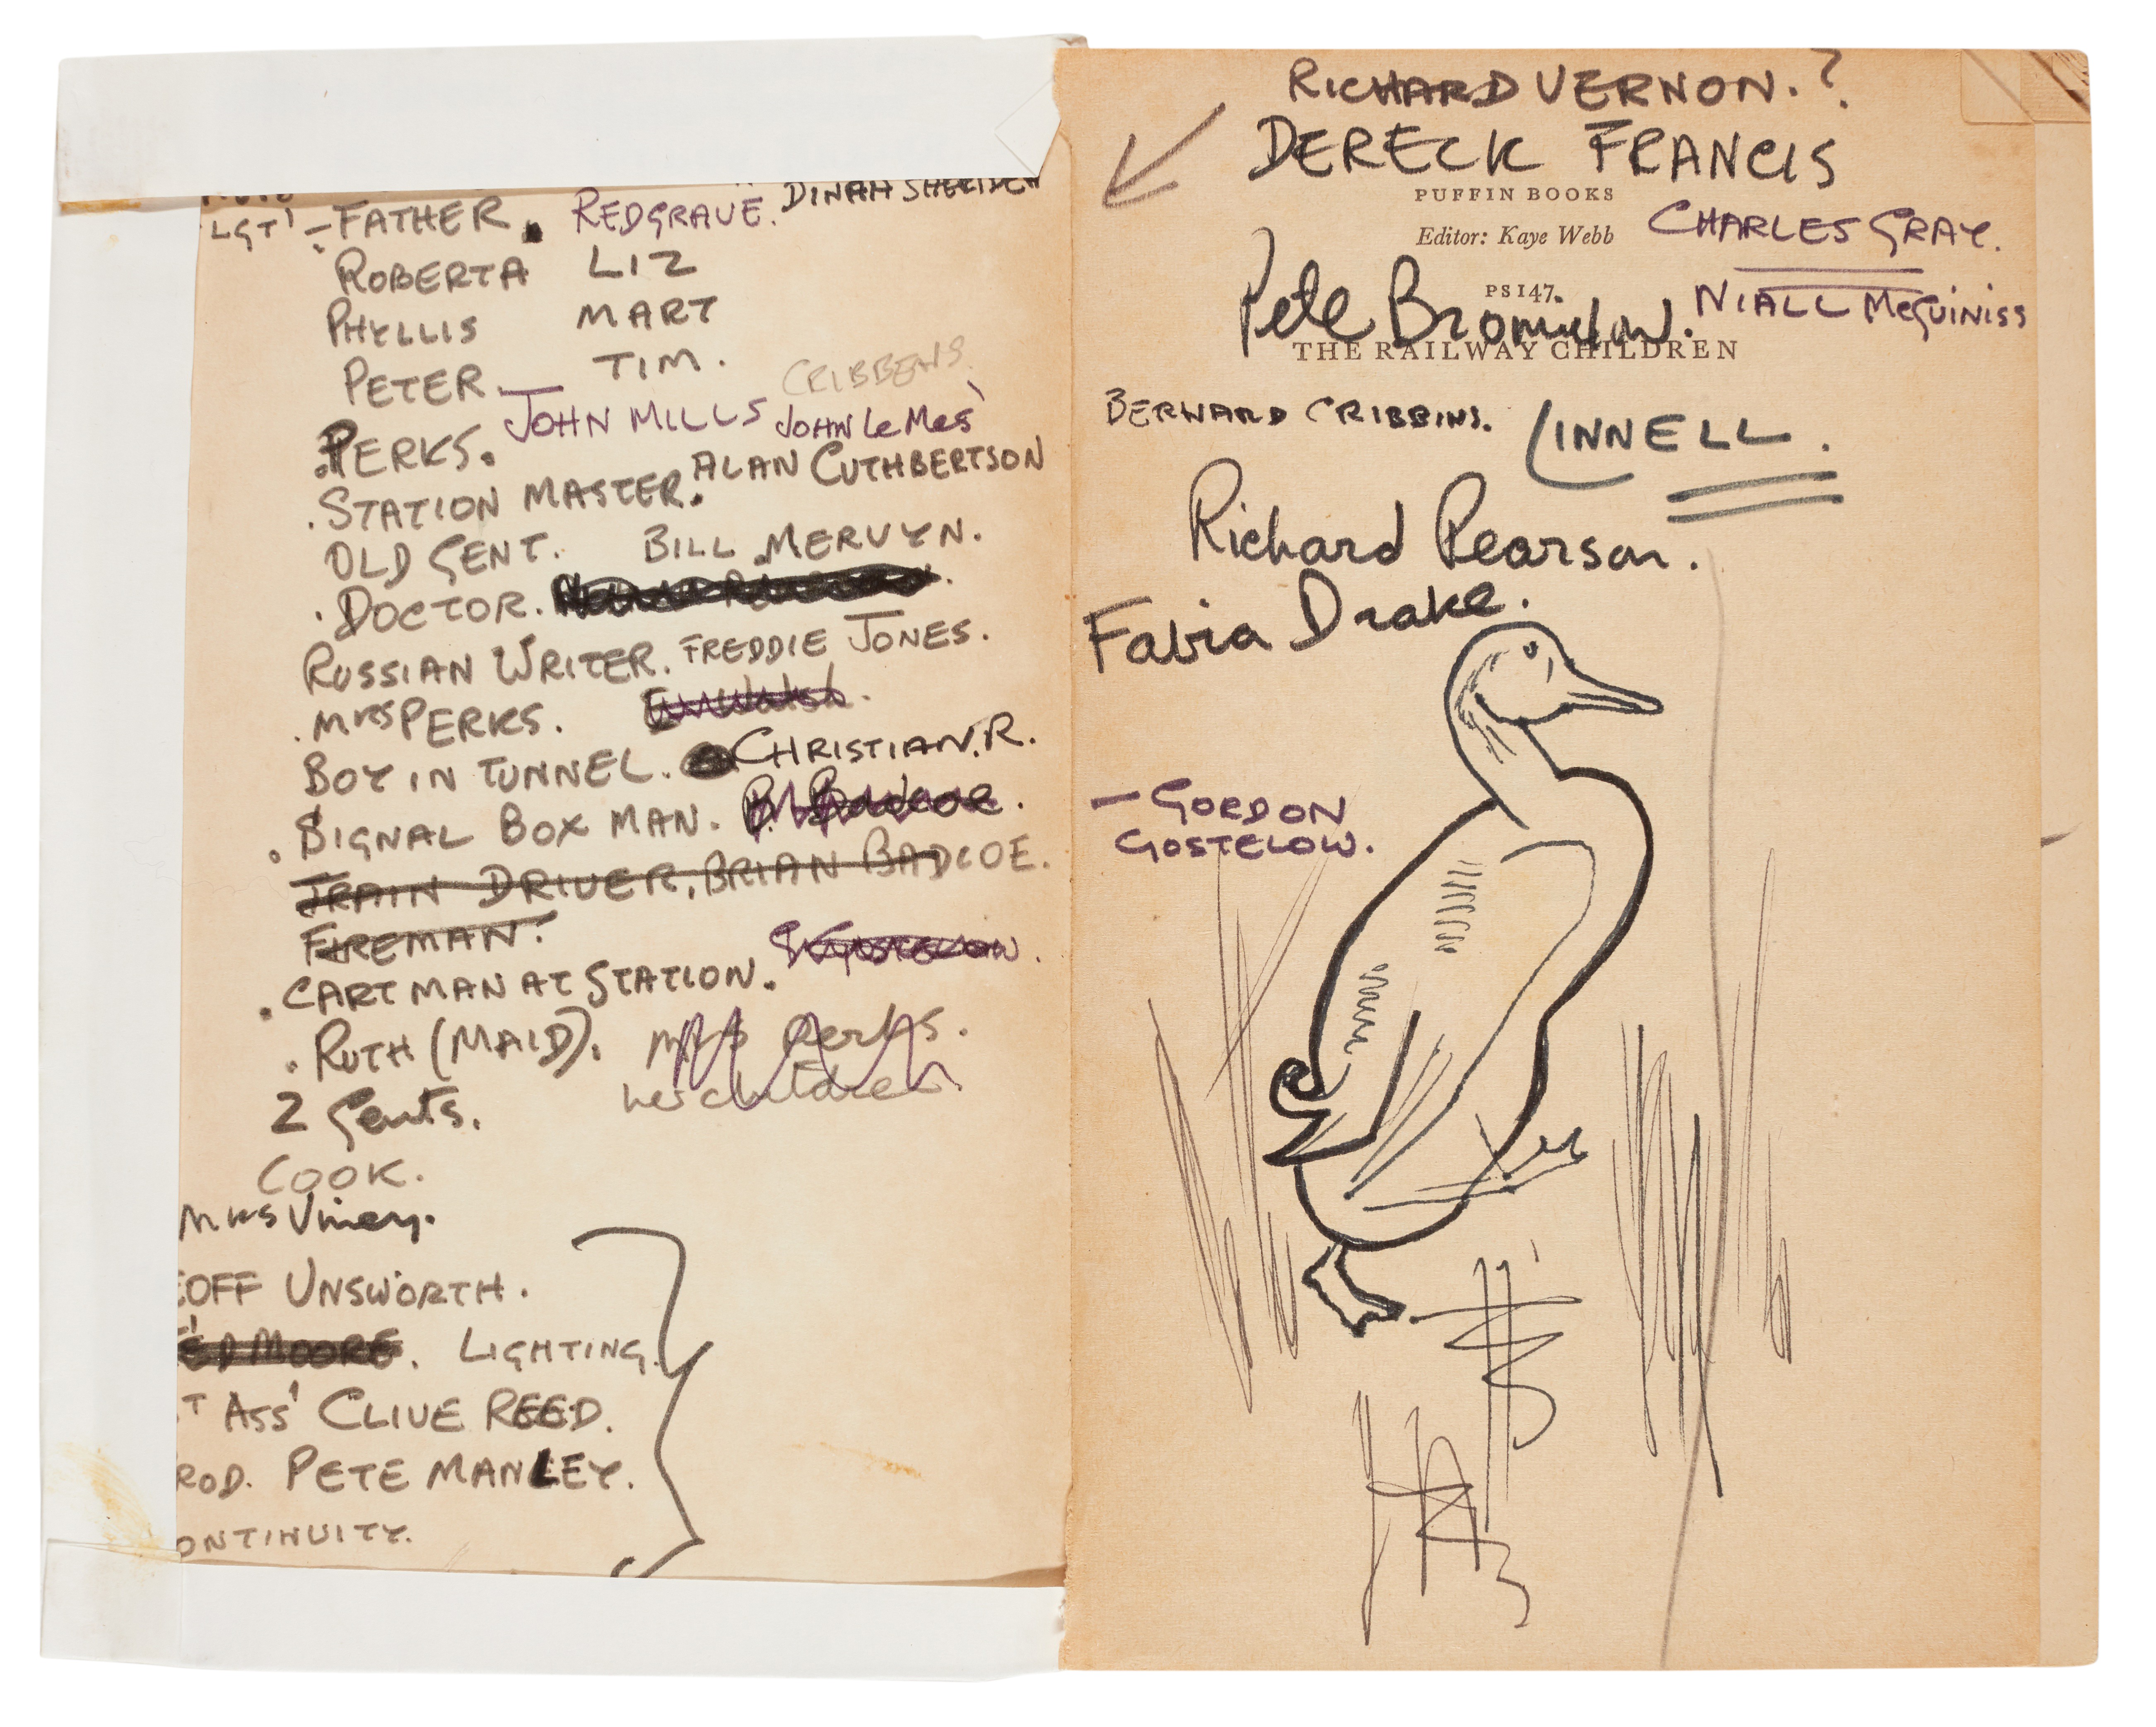 DINAH SHERIDEN
LGT' - FATHER. REDGRAVE.
ROBERTA LIZ
PHYLLIS MART
PETER. TIM.
CRIBBENS.
PERKS. JOHN MILLS JOHN Le Mes'
.STATION MASTER. ALAN CUTHBERTSON
OLD GENT. BILL MERVYN.
.DOCTOR.
RUSSIAN WRITER. FREDDIE JONES.
.MRS PERKS.
BOY IN TUNNEL. CHRISTIAN.R.
.SIGNAL BOX MAN. B. Badcoe.
TRAIN DRIVER, BRIAN BADCOE.
FIREMAN.
.CART MAN AT STATION. G Gostelow.
.RUTH (MAID). Mrs Perks.
her children.
2 Gents.
COOK.
MRS Viney.
EOFF UNSWORTH.
ED MOORE. LIGHTING.
T ASS' CLIVE REED.
ROD. PETE MANLEY.
ONTINUITY.
RICHARD VERNON.?
DERECK FRANCIS
PUFFIN BOOKS
CHARLES GRAY.
Editor: Kaye Webb
PS147.
NIALL McGUINISS
Pete Bromilow.
THE RAILWAY CHILDREN
BERNARD CRIBBINS.
LINNELL.
Richard Pearson.
Fabia Drake.
- GORDON
GOSTELOW.